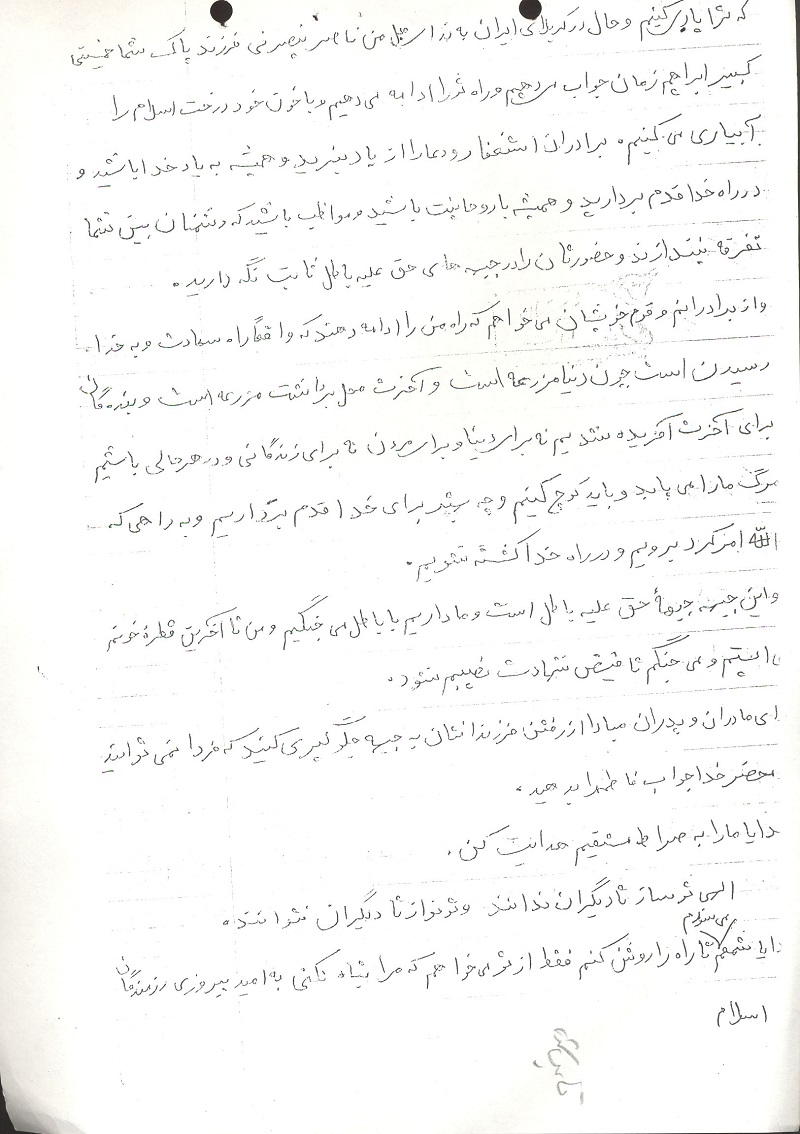 که ترا یاری کنیم و حال در کربلای ایران به ندای هل من ناصر ینصرنی فرزند پاک شما خمینی
کبیر ابراهیم زمان جواب می دهیم و راه ترا ادامه می دهیم و با خون خود درخت اسلام را
آبیاری می کنیم. برادران استغفار و دعا را از یاد نبرید و همیشه به یاد خدا باشید و
در راه خدا قدم بردارید و همیشه با روحانیت باشید و مواظب باشید که دشمنان بین شما
تفرقه نیندازند و حضورتان را در جبهه های حق علیه باطل ثابت نگه دارید.
و از برادرانم و قوم خویشان می خواهم که راه من را ادامه دهند که واقعاً راه سعادت و به خدا
رسیدن است چون دنیا مزرعه است و آخرت محل برداشت مزرعه است و بنده گان
برای آخرت آفریده شدیم نه برای دنیا و برای مردن نه برای زندگانی و در هر حالی باشیم
مرگ ما را می یابد و باید کوچ کنیم و چه بهتر برای خدا قدم برداریم و به راهی که
الله امر کرد برویم و در راه خدا کشته شویم.
و این جبهه جبههٔ حق علیه باطل است و ما داریم با باطل می جنگیم و من تا آخرین قطرهٔ خونم
می ایستم و می جنگم تا فیض شهادت نصیبم شود.
ای مادران و پدران مبادا از رفتن فرزندانتان به جبهه جلوگیری کنید که فردا نمی توانید
محضر خدا جواب فاطمه را بدهید.
خدایا ما را به صراط مستقیم هدایت کن.
الهی تو ساز تا دیگران ندانند و تو نواز تا دیگران نتوانند.
خدایا شمعم می سوزم تا راه را روشن کنم فقط از تو می خواهم که مرا تباه نکنی به امید پیروزی رزمندگان
اسلام